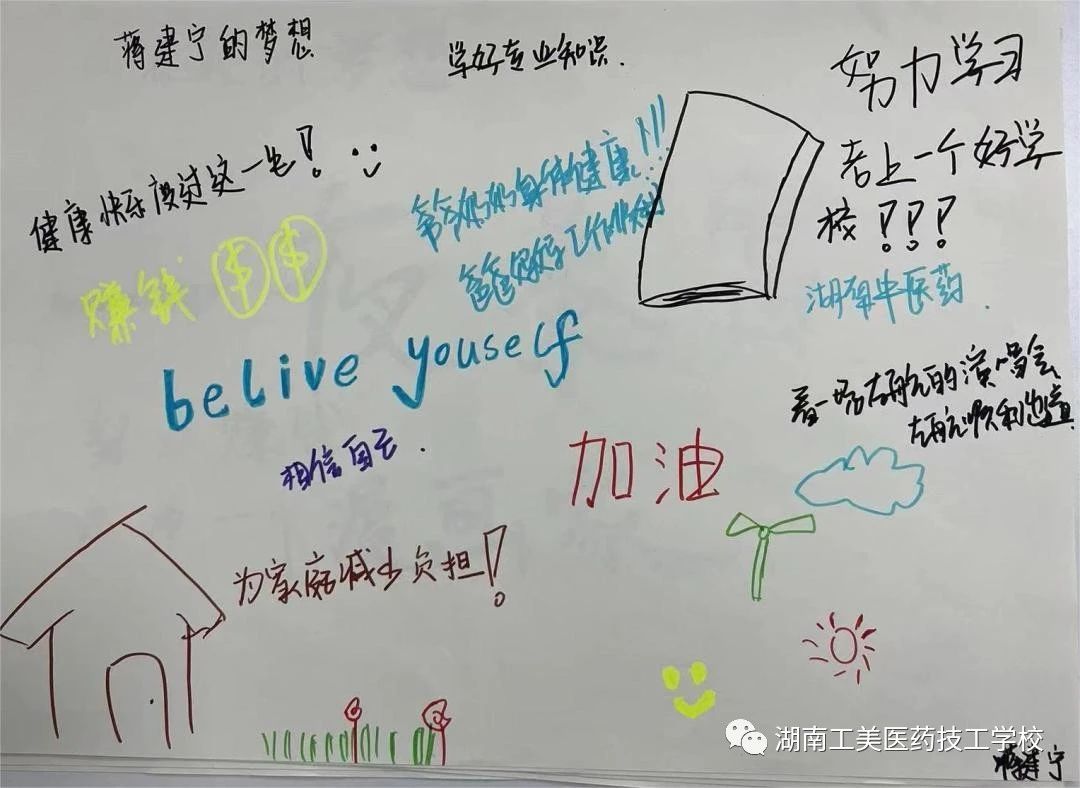 蒋建宁的梦想
学好专业知识.
努力学习
考上一个好学
校!!!
湖南中医药.
健康快乐度过这一生!
爷爷奶奶身体健康!!!
爸爸妈妈工作顺利
赚钱
belive youself
相信自己.
看一场左航的演唱会
左航顺利出道
加油
为家庭减少负担!
湖南工美医药技工学校
蒋建宁